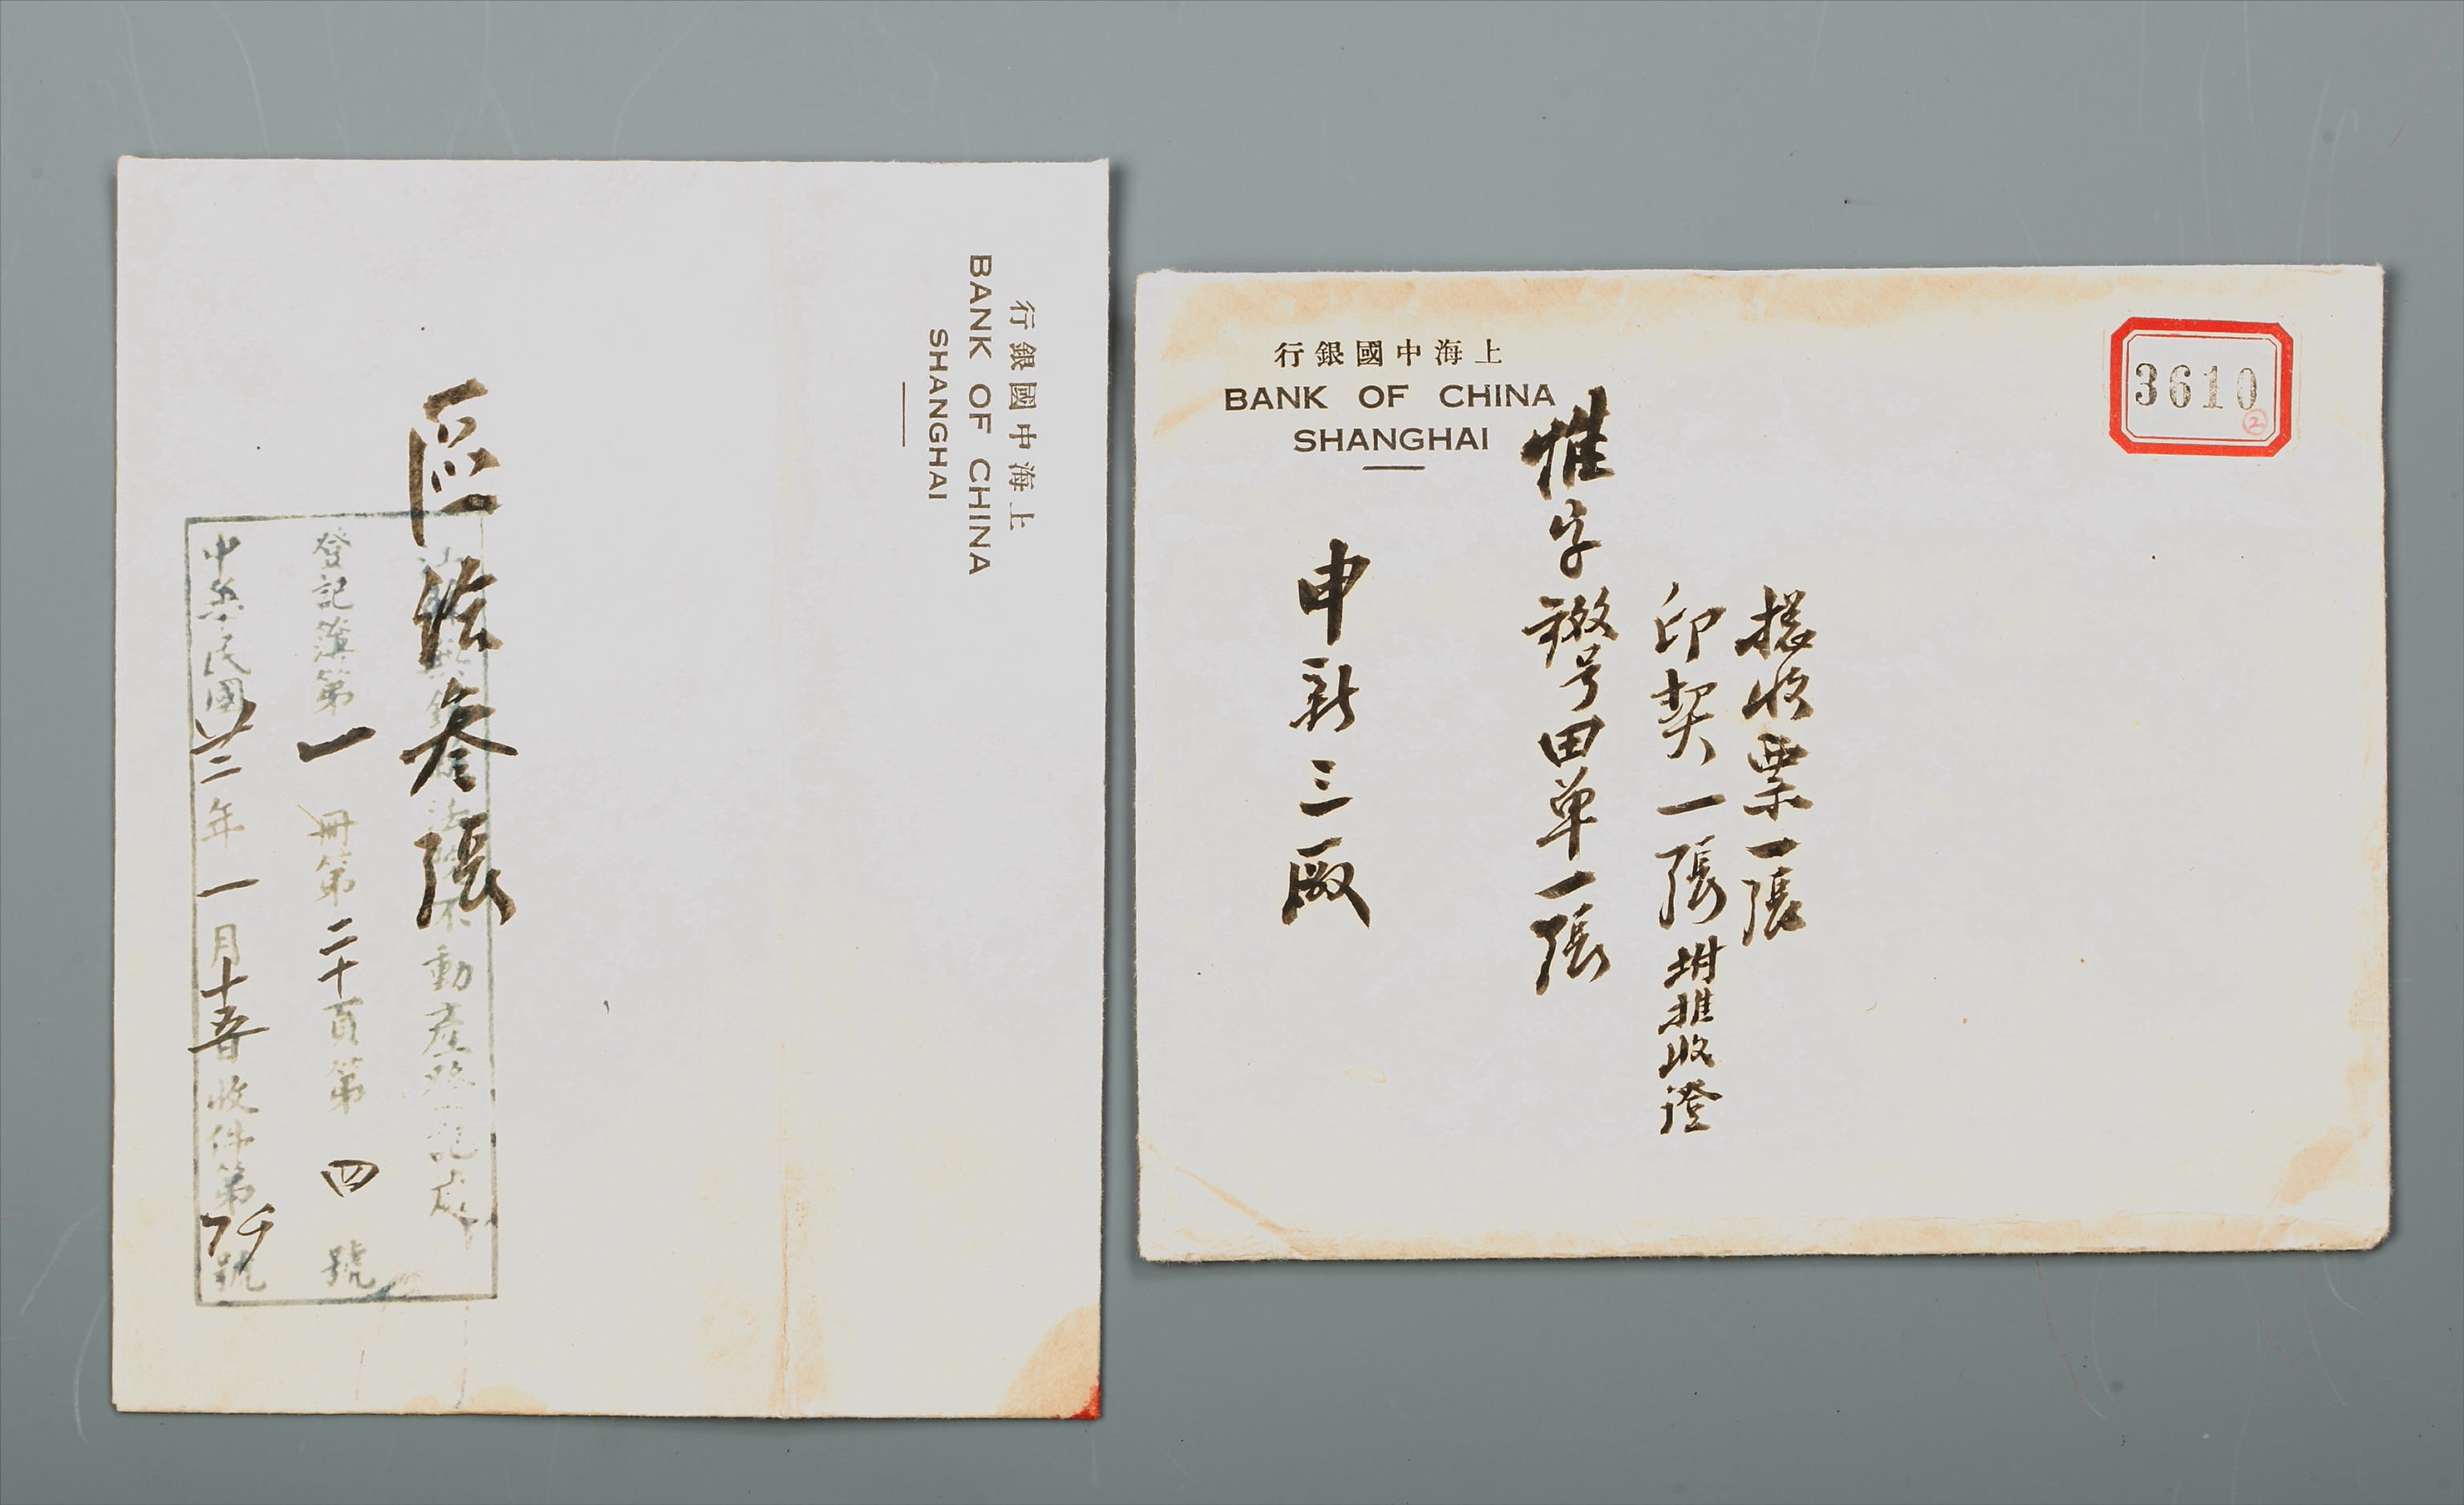 上海中國銀行
BANK OF CHINA
SHANGHAI
區 叁張
不動產登記處
登記簿第一冊第二十頁第四號
中華民國廿三年一月十五日收件第 號
3610
②
上海中國銀行
BANK OF CHINA
SHANGHAI
收票一張
印契一張附推收證
惟字 号田单一張
申新三廠